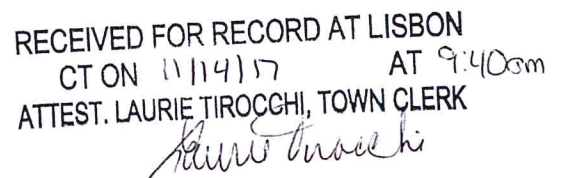 RECEIVED FOR RECORD AT LISBON
CT ON 11/14/17 AT 9:40am
ATTEST. LAURIE TIROCCHI, TOWN CLERK
Laurie Tirocchi